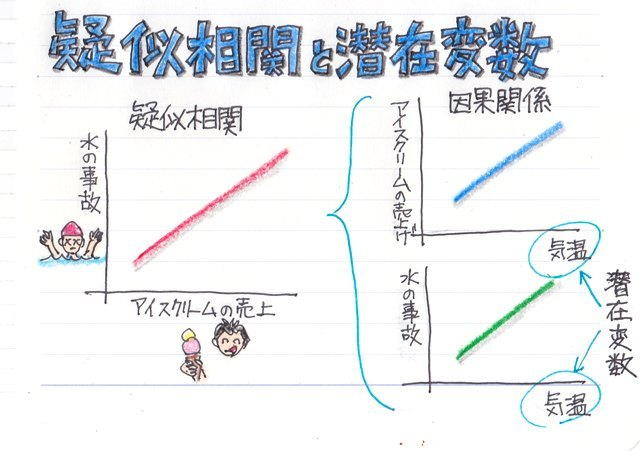 疑似相関と潜在変数
疑似相関
水の事故
アイスクリームの売上
因果関係
アイスクリームの売上げ
気温
水の事故
気温
潜在変数